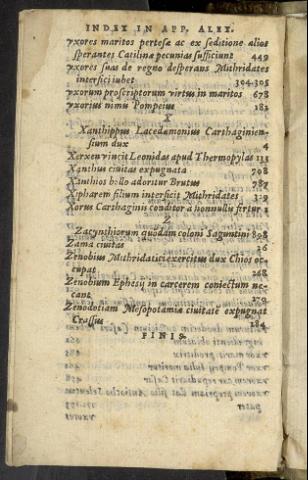 INDEX IN APP. ALEX.
vxores maritos pertesæ ac ex seditione alios
sperantes Catilinæ pecunias sufficiunt 449
vxores suas de regno desperans Mithridates
interfici iubet 304.305
vxorum proscriptorum virtus in maritos 678
vxorius nimis Pompeius 383
X
Xanthippus Lacedæmonius Carthaginien-
sium dux 4
Xerxen vincit Leonidas apud Thermopylas 131
Xanthus ciuitas expugnata 708
Xanthios bello adoritur Brutus 787
Xipharem filium interficit Mithridates 339
Xorus Carthaginis conditor à nonnullis fertur 1
Z
Zacynthiorum quidam coloni Saguntini 898
Zama ciuitas 26
Zenobius Mithridatici exercitus dux Chios oc-
cupat 268
Zenobium Ephesij in carcerem coniectum ne-
cant 270
Zenodotiam Mesopotamiæ ciuitatē expugnat
Crassus 184
FINIS.